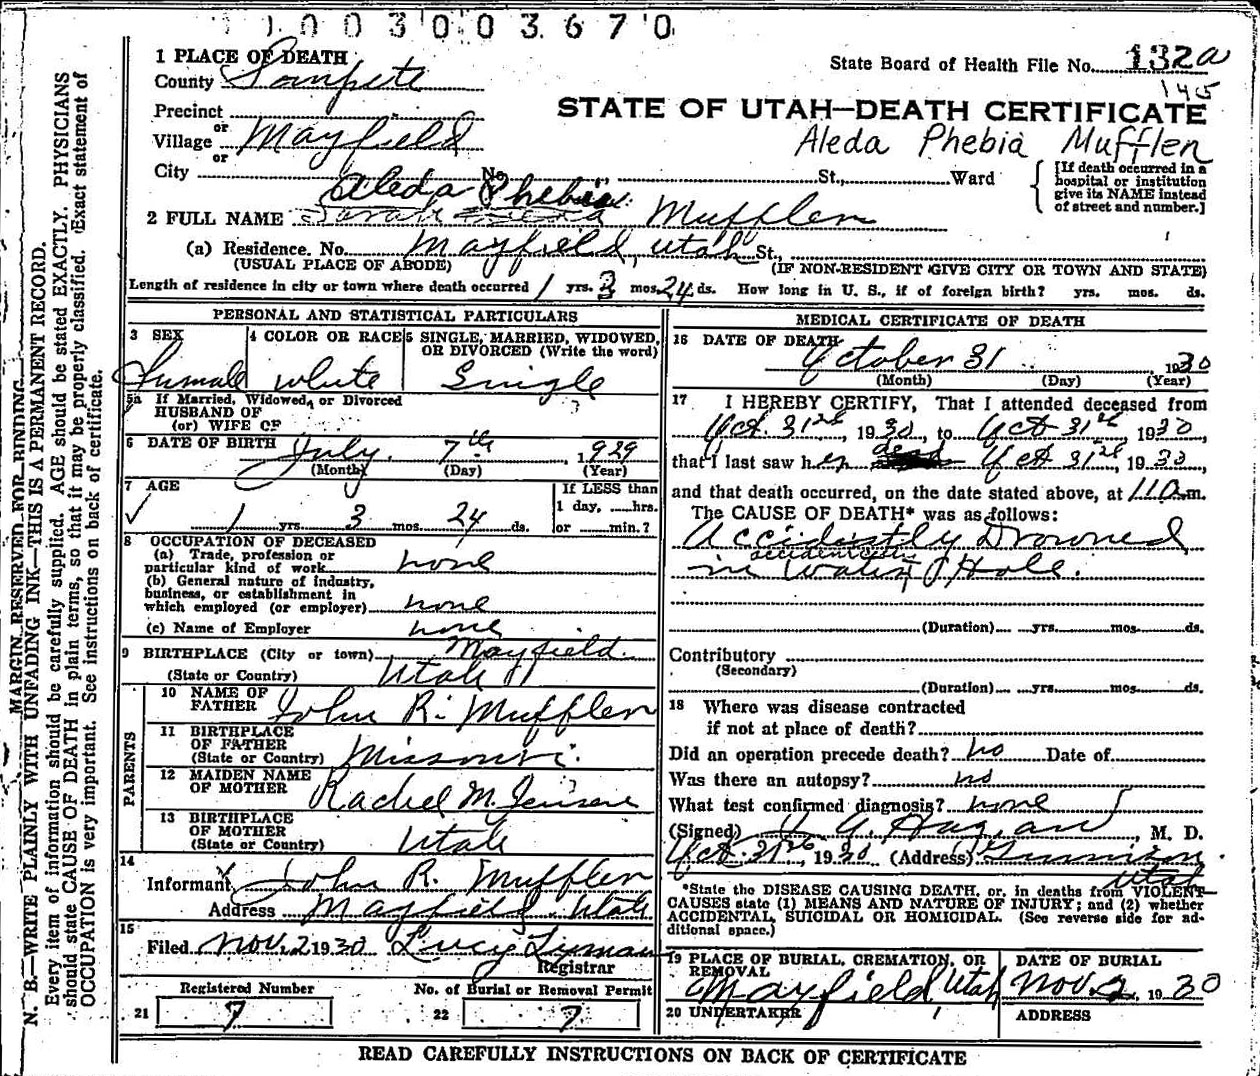 1003003670
1 PLACE OF DEATH
County Sanpete
State Board of Health File No. 132a
145
Precinct
or
Village Mayfield
or
STATE OF UTAH—DEATH CERTIFICATE
Aleda Phebia Mufflen
City No. St., Ward
[If death occurred in a hospital or institution give its NAME instead of street and number.]
Aleda Phebia
2 FULL NAME Mufflen
(a) Residence. No. Mayfield, Utah St.,
(USUAL PLACE OF ABODE) (IF NON-RESIDENT GIVE CITY OR TOWN AND STATE)
Length of residence in city or town where death occurred 1 yrs. 3 mos. 24 ds. How long in U. S., if of foreign birth? yrs. mos. ds.
PERSONAL AND STATISTICAL PARTICULARS
3 SEX 4 COLOR OR RACE 5 SINGLE, MARRIED, WIDOWED, OR DIVORCED (Write the word)
Female White Single
5a If Married, Widowed, or Divorced
HUSBAND OF
(or) WIFE OF
6 DATE OF BIRTH July 7th, 1929
(Month) (Day) (Year)
7 AGE
If LESS than
1 day, hrs.
1 yrs. 3 mos. 24 ds. or min.?
8 OCCUPATION OF DECEASED
(a) Trade, profession or
particular kind of work none
(b) General nature of industry,
business, or establishment in
which employed (or employer) none
(c) Name of Employer none
9 BIRTHPLACE (City or town) Mayfield
(State or Country) Utah
PARENTS
10 NAME OF
FATHER John R. Mufflen
11 BIRTHPLACE
OF FATHER
(State or Country) Missouri
12 MAIDEN NAME
OF MOTHER Rachel M. Jensen
13 BIRTHPLACE
OF MOTHER
(State or Country) Utah
14
Informant John R. Mufflen
Address Mayfield, Utah
15
Filed Nov. 2 1930 Lucy Lyman
Registrar
Registered Number No. of Burial or Removal Permit
21 7 22 7
MEDICAL CERTIFICATE OF DEATH
16 DATE OF DEATH
October 31 1930
(Month) (Day) (Year)
17 I HEREBY CERTIFY, That I attended deceased from
Oct. 31st, 1930, to Oct 31st, 1930,
that I last saw her dead Oct 31st, 1930,
and that death occurred, on the date stated above, at 110 m.
The CAUSE OF DEATH* was as follows:
Accidently Drowned
accidentally
in Water Hole.
(Duration) yrs. mos. ds.
Contributory
(Secondary)
(Duration) yrs. mos. ds.
18 Where was disease contracted
if not at place of death?
Did an operation precede death? no Date of
Was there an autopsy? no
What test confirmed diagnosis? none
(Signed) Hagan, M. D.
Oct. 31st, 1930 (Address) Gunnison
Utah
*State the DISEASE CAUSING DEATH, or, in deaths from VIOLENT
CAUSES state (1) MEANS AND NATURE OF INJURY; and (2) whether
ACCIDENTAL, SUICIDAL OR HOMICIDAL. (See reverse side for ad-
ditional space.)
19 PLACE OF BURIAL, CREMATION, OR
REMOVAL
Mayfield, Utah
DATE OF BURIAL
Nov. 2, 1930
20 UNDERTAKER ADDRESS
READ CAREFULLY INSTRUCTIONS ON BACK OF CERTIFICATE
MARGIN RESERVED FOR BINDING
N. B.—WRITE PLAINLY WITH UNFADING INK—THIS IS A PERMANENT RECORD.
Every item of information should be carefully supplied. AGE should be stated EXACTLY. PHYSICIANS
should state CAUSE OF DEATH in plain terms, so that it may be properly classified. Exact statement of
OCCUPATION is very important. See instructions on back of certificate.